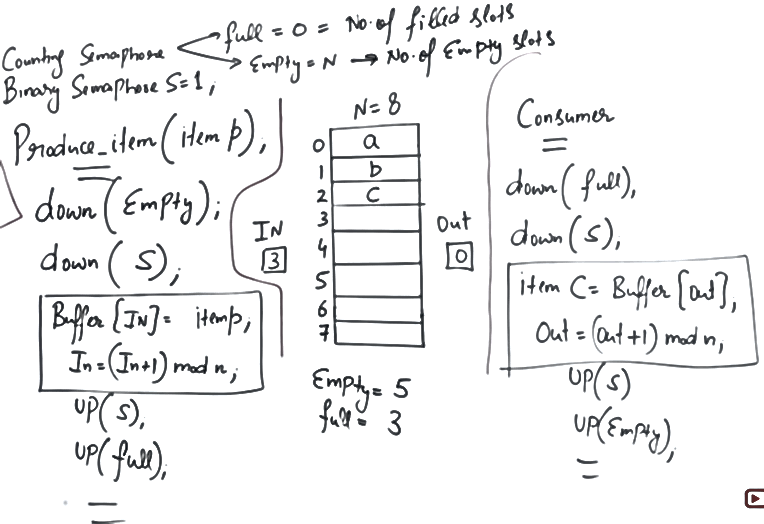 Counting Semaphore
full = 0 = No. of filled slots
Empty = N → No. of Empty slots
Binary Semaphore S=1;
Produce_item(item p);
down(Empty);
down(S);
Buffer[IN] = itemp;
In = (In+1) mod n;
UP(S);
UP(full);
N = 8
0 a
1 b
2 C
3
4
5
6
7
IN
3
Out
0
Empty = 5
full = 3
Consumer
down(full);
down(S);
item C = Buffer[Out];
Out = (Out+1) mod n;
UP(S)
UP(Empty);